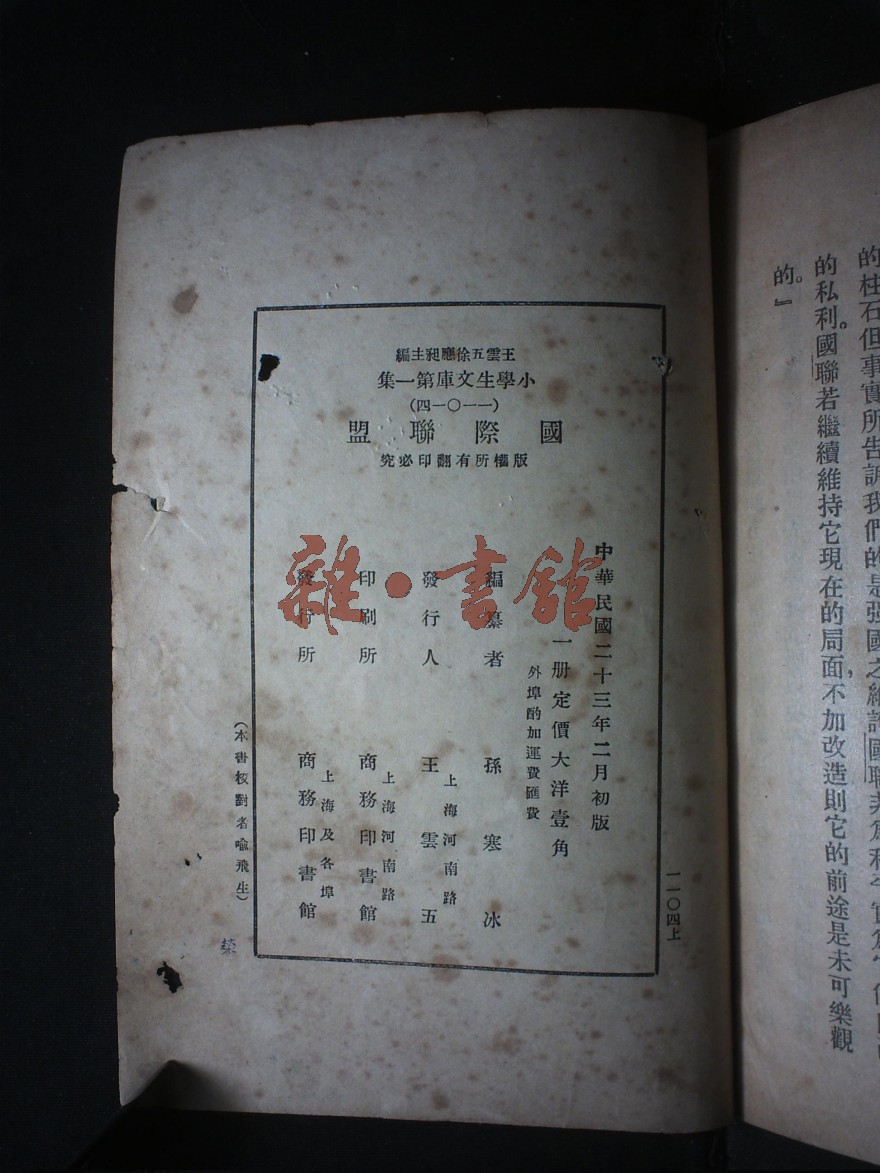 的柱石但事實所告訴我們的是強國之維護國聯非爲
的私利。國聯若繼續維持它現在的局面，不加改造則它的前途是未可樂觀
的。』
王雲五徐應昶主編
小學生文庫第一集
（一一〇一四）
國際聯盟
版權所有翻印必究
中華民國二十三年二月初版
一册定價大洋壹角
外埠酌加運費匯費
編纂者 孫寒冰
發行人 王雲五
上海河南路
印刷所 商務印書館
上海河南路
發行所 商務印書館
上海及各埠
（本書校對者喩飛生）
一一〇四上
榮
雜·書館